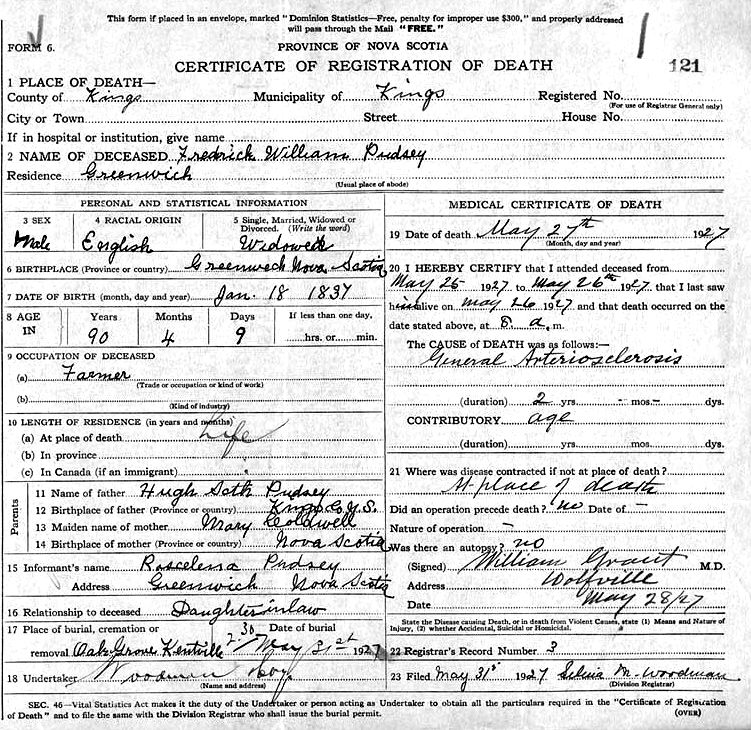 This form if placed in an envelope, marked "Dominion Statistics—Free, penalty for improper use $300," and properly addressed
will pass through the Mail "FREE."
FORM 6.
PROVINCE OF NOVA SCOTIA
CERTIFICATE OF REGISTRATION OF DEATH
121
1 PLACE OF DEATH—
County of Kings Municipality of Kings Registered No.
(For use of Registrar General only)
City or Town Street House No.
If in hospital or institution, give name
2 NAME OF DECEASED Fredrick William Pudsey
Residence Greenwich
(Usual place of abode)
PERSONAL AND STATISTICAL INFORMATION
3 SEX 4 RACIAL ORIGIN 5 Single, Married, Widowed or
Divorced. (Write the word)
Male English Widowed
6 BIRTHPLACE (Province or country) Greenwech Nova Scotia
7 DATE OF BIRTH (month, day and year) Jan. 18 1837
8 AGE IN Years Months Days If less than one day,
90 4 9 hrs. or min.
9 OCCUPATION OF DECEASED
(a) Farmer
(Trade or occupation or kind of work)
(b)
(Kind of industry)
10 LENGTH OF RESIDENCE (in years and months)
(a) At place of death Life
(b) In province
(c) In Canada (if an immigrant)
Parents
11 Name of father Hugh Seth Pudsey
12 Birthplace of father (Province or country) Kings Co N.S.
13 Maiden name of mother Mary Coldwell
14 Birthplace of mother (Province or country) Nova Scotia
15 Informant's name Roscelena Pudsey
Address Greenwich Nova Scotia
16 Relationship to deceased Daughter inlaw
17 Place of burial, cremation or 2-30 Date of burial
removal Oak Grove Kentville May 31st 1927
18 Undertaker Woodman
(Name and address)
MEDICAL CERTIFICATE OF DEATH
19 Date of death May 27th 1927
(Month, day and year)
20 I HEREBY CERTIFY that I attended deceased from
May 25 1927 to May 26th 1927, that I last saw
him alive on May 26 1927 and that death occurred on the
date stated above, at 8. a. m.
The CAUSE of DEATH was as follows:—
General Arteriosclerosis
(duration) 2 yrs. – mos. – dys.
CONTRIBUTORY age
(duration) yrs. mos. dys.
21 Where was disease contracted if not at place of death?
At place of death
Did an operation precede death? no Date of –
Nature of operation –
Was there an autopsy? no
(Signed) William Grant M.D.
Address Wolfville
Date May 28/27
State the Disease causing Death, or in death from Violent Causes, state (1) Means and Nature of
Injury, (2) whether Accidental, Suicidal or Homicidal.
22 Registrar's Record Number 3
23 Filed May 31st 1927 Selina M. Woodman
(Division Registrar)
SEC. 46—Vital Statistics Act makes it the duty of the Undertaker or person acting as Undertaker to obtain all the particulars required in the "Certificate of Registration
of Death" and to file the same with the Division Registrar who shall issue the burial permit. (OVER)